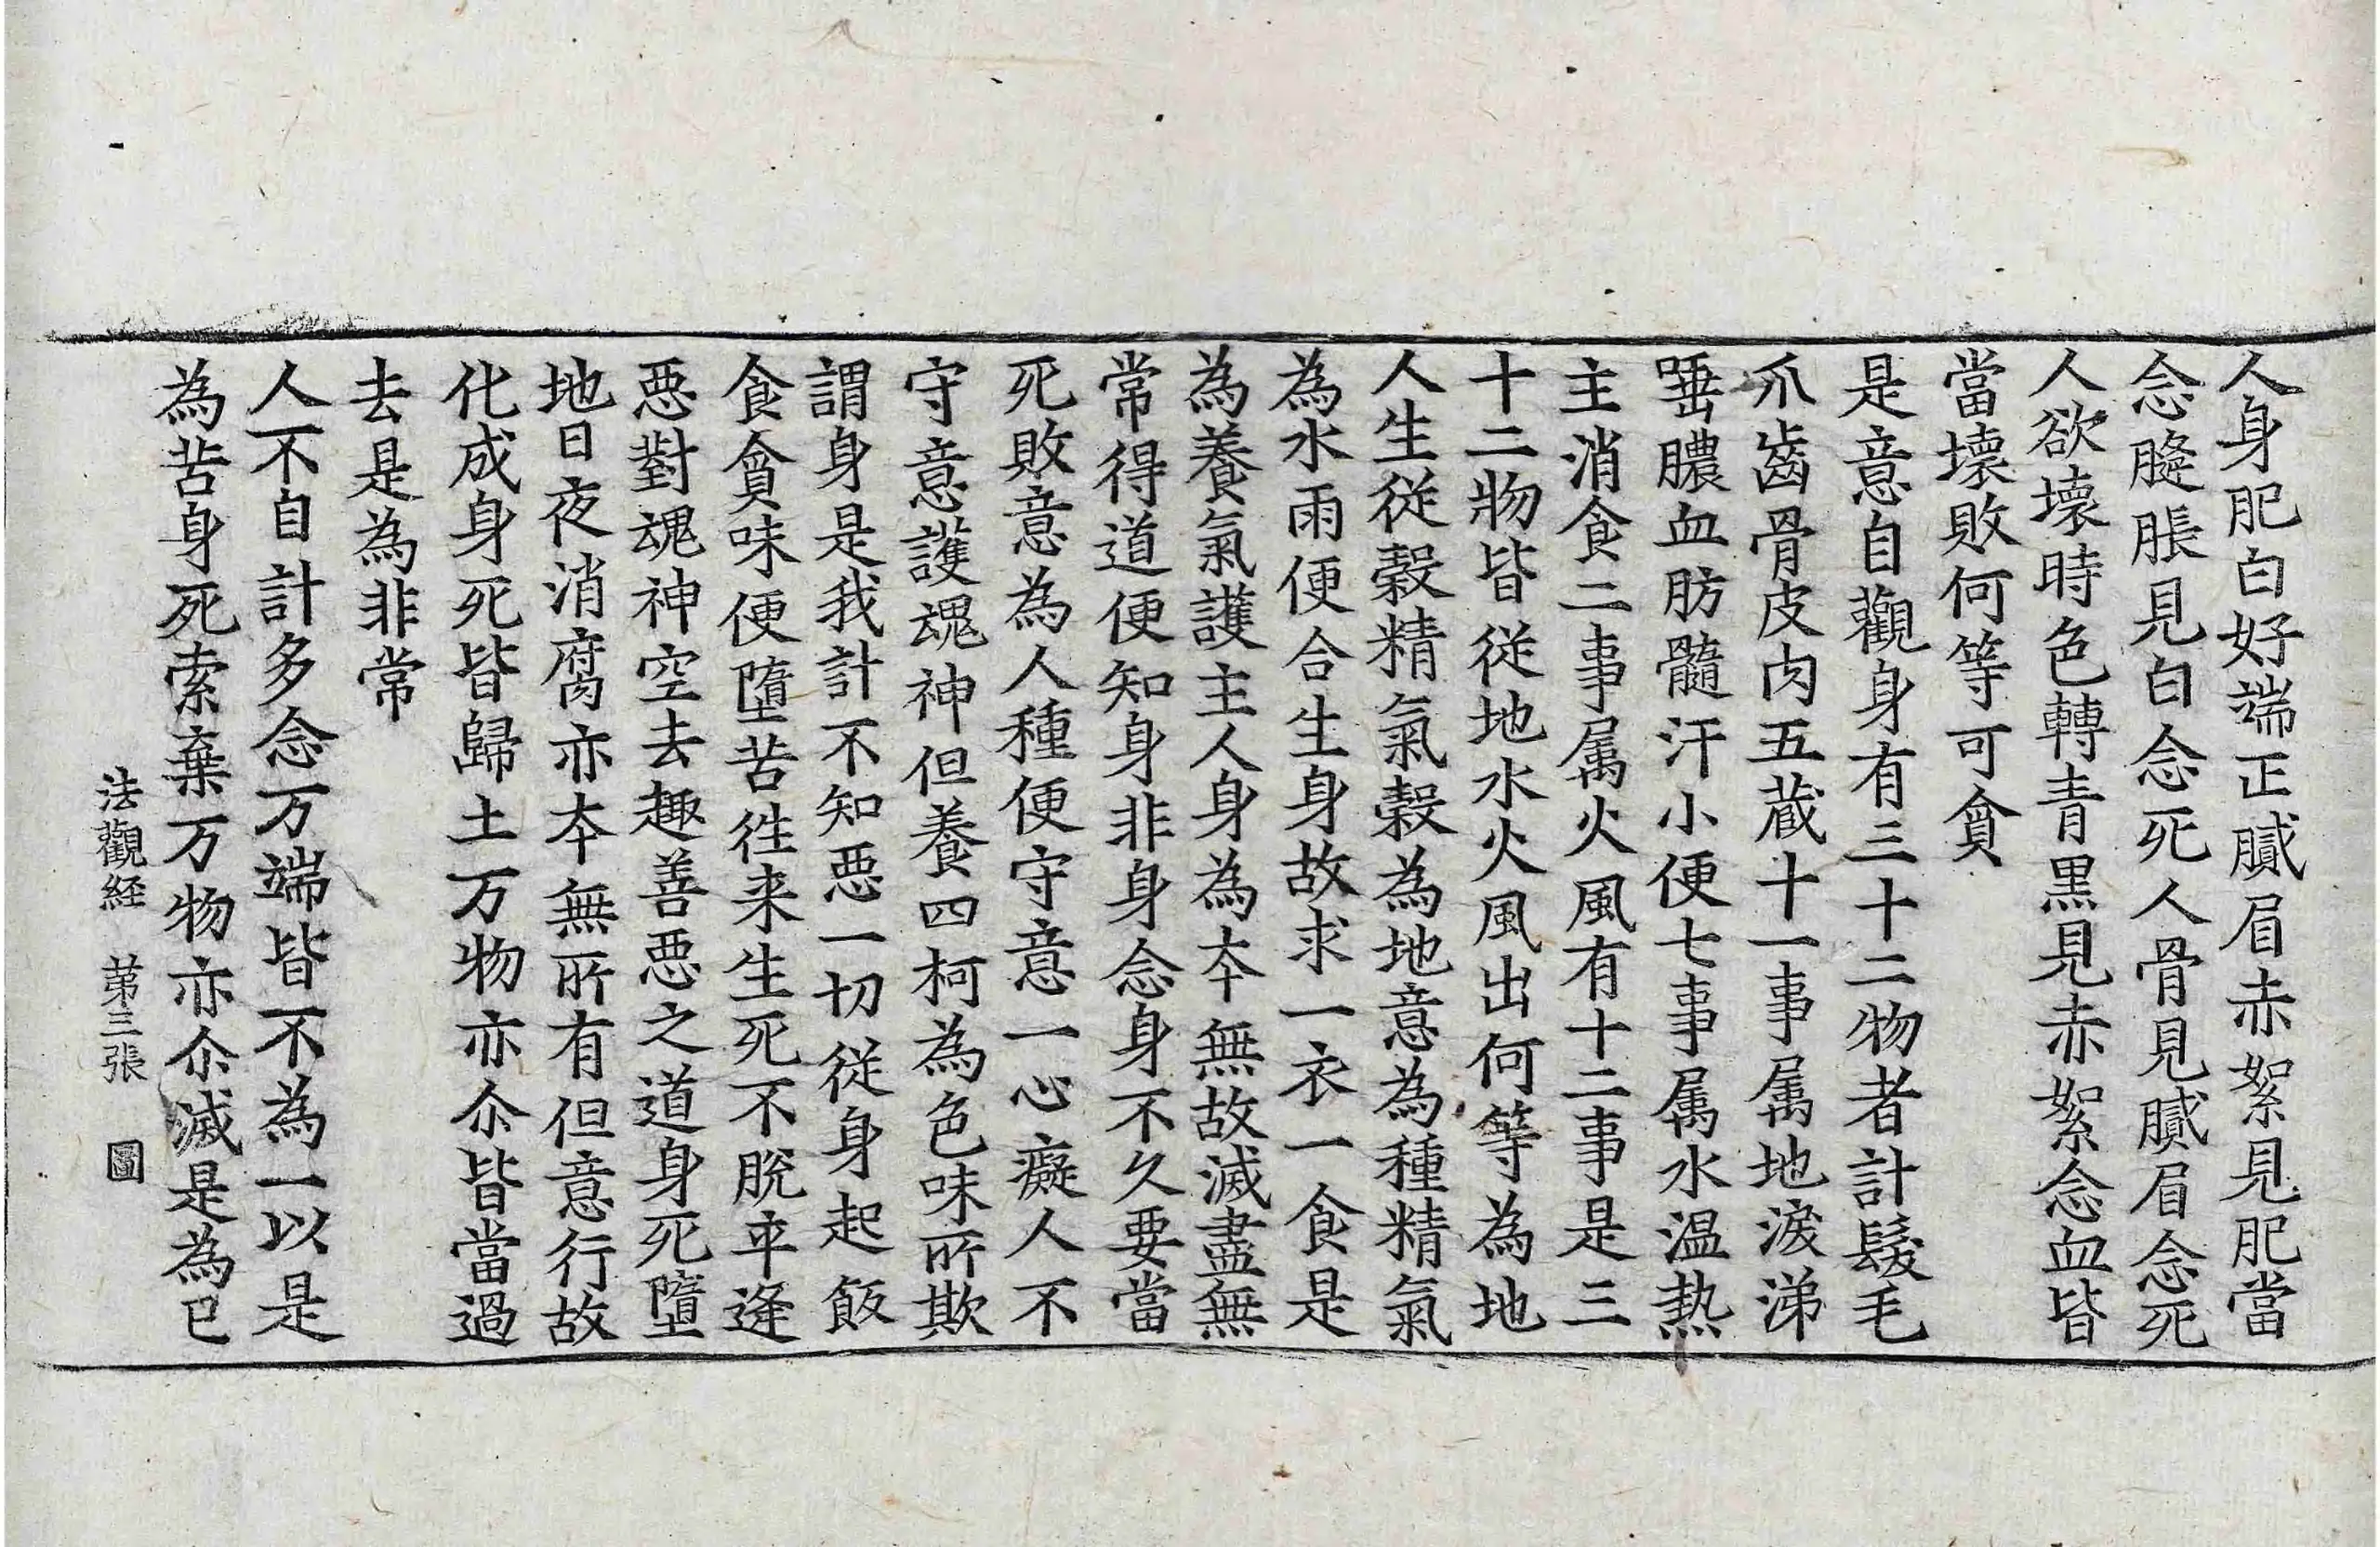 人身肥白好端正膩眉赤絮見肥當
念膖脹見白念死人骨見膩眉念死
人欲壞時色轉青黒見赤絮念血皆
當壞敗何等可貪
是意自觀身有三十二物者計髮毛
爪齒骨皮肉五蔵十一事属地淚涕
唾膿血肪髓汗小便七事属水温熱
主消食二事属火風有十二事是三
十二物皆従地水火風出何等為地
人生従穀精氣穀為地意為種精氣
為水雨便合生身故求一衣一食是
為養氣護主人身為夲無故滅盡無
常得道便知身非身念身不久要當
死敗意為人種便守意一心癡人不
守意護魂神但養四柯為色味所欺
謂身是我計不知悪一切従身起飯
食貪味便墮苦徃来生死不脫卒逢
悪對魂神空去趣善悪之道身死墮
地日夜消腐亦夲無所有但意行故
化成身死皆歸土万物亦尒皆當過
去是為非常
人不自計多念万端皆不為一以是
為苦身死索棄万物亦尒滅是為已
法觀経 苐三張 圖